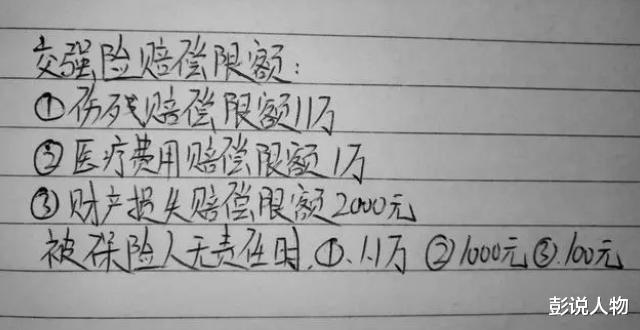 交强险赔偿限额:
①伤残赔偿限额11万
②医疗费用赔偿限额1万
③财产损失赔偿限额2000元
被保险人无责任时.①.1.1万 ②1000元③.100元
彭说人物